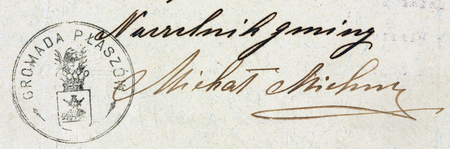 GROMADA PŁASZÓW
Naczelnik gminy
Michał